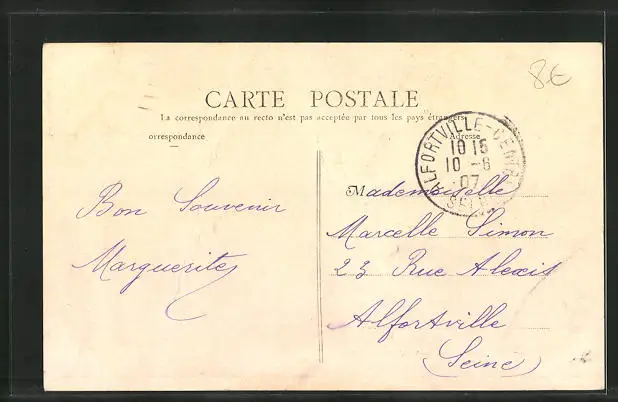 8€
CARTE POSTALE
La correspondance au recto n'est pas acceptée par tous les pays étrangers
orrespondance
Adresse
ALFORTVILLE-CENTR
10 15
10 -6
07
SEINE
Bon Souvenir
Marguerite
Mademoiselle
Marcelle Simon
23 Rue Alexis
Alfortville
(Seine)